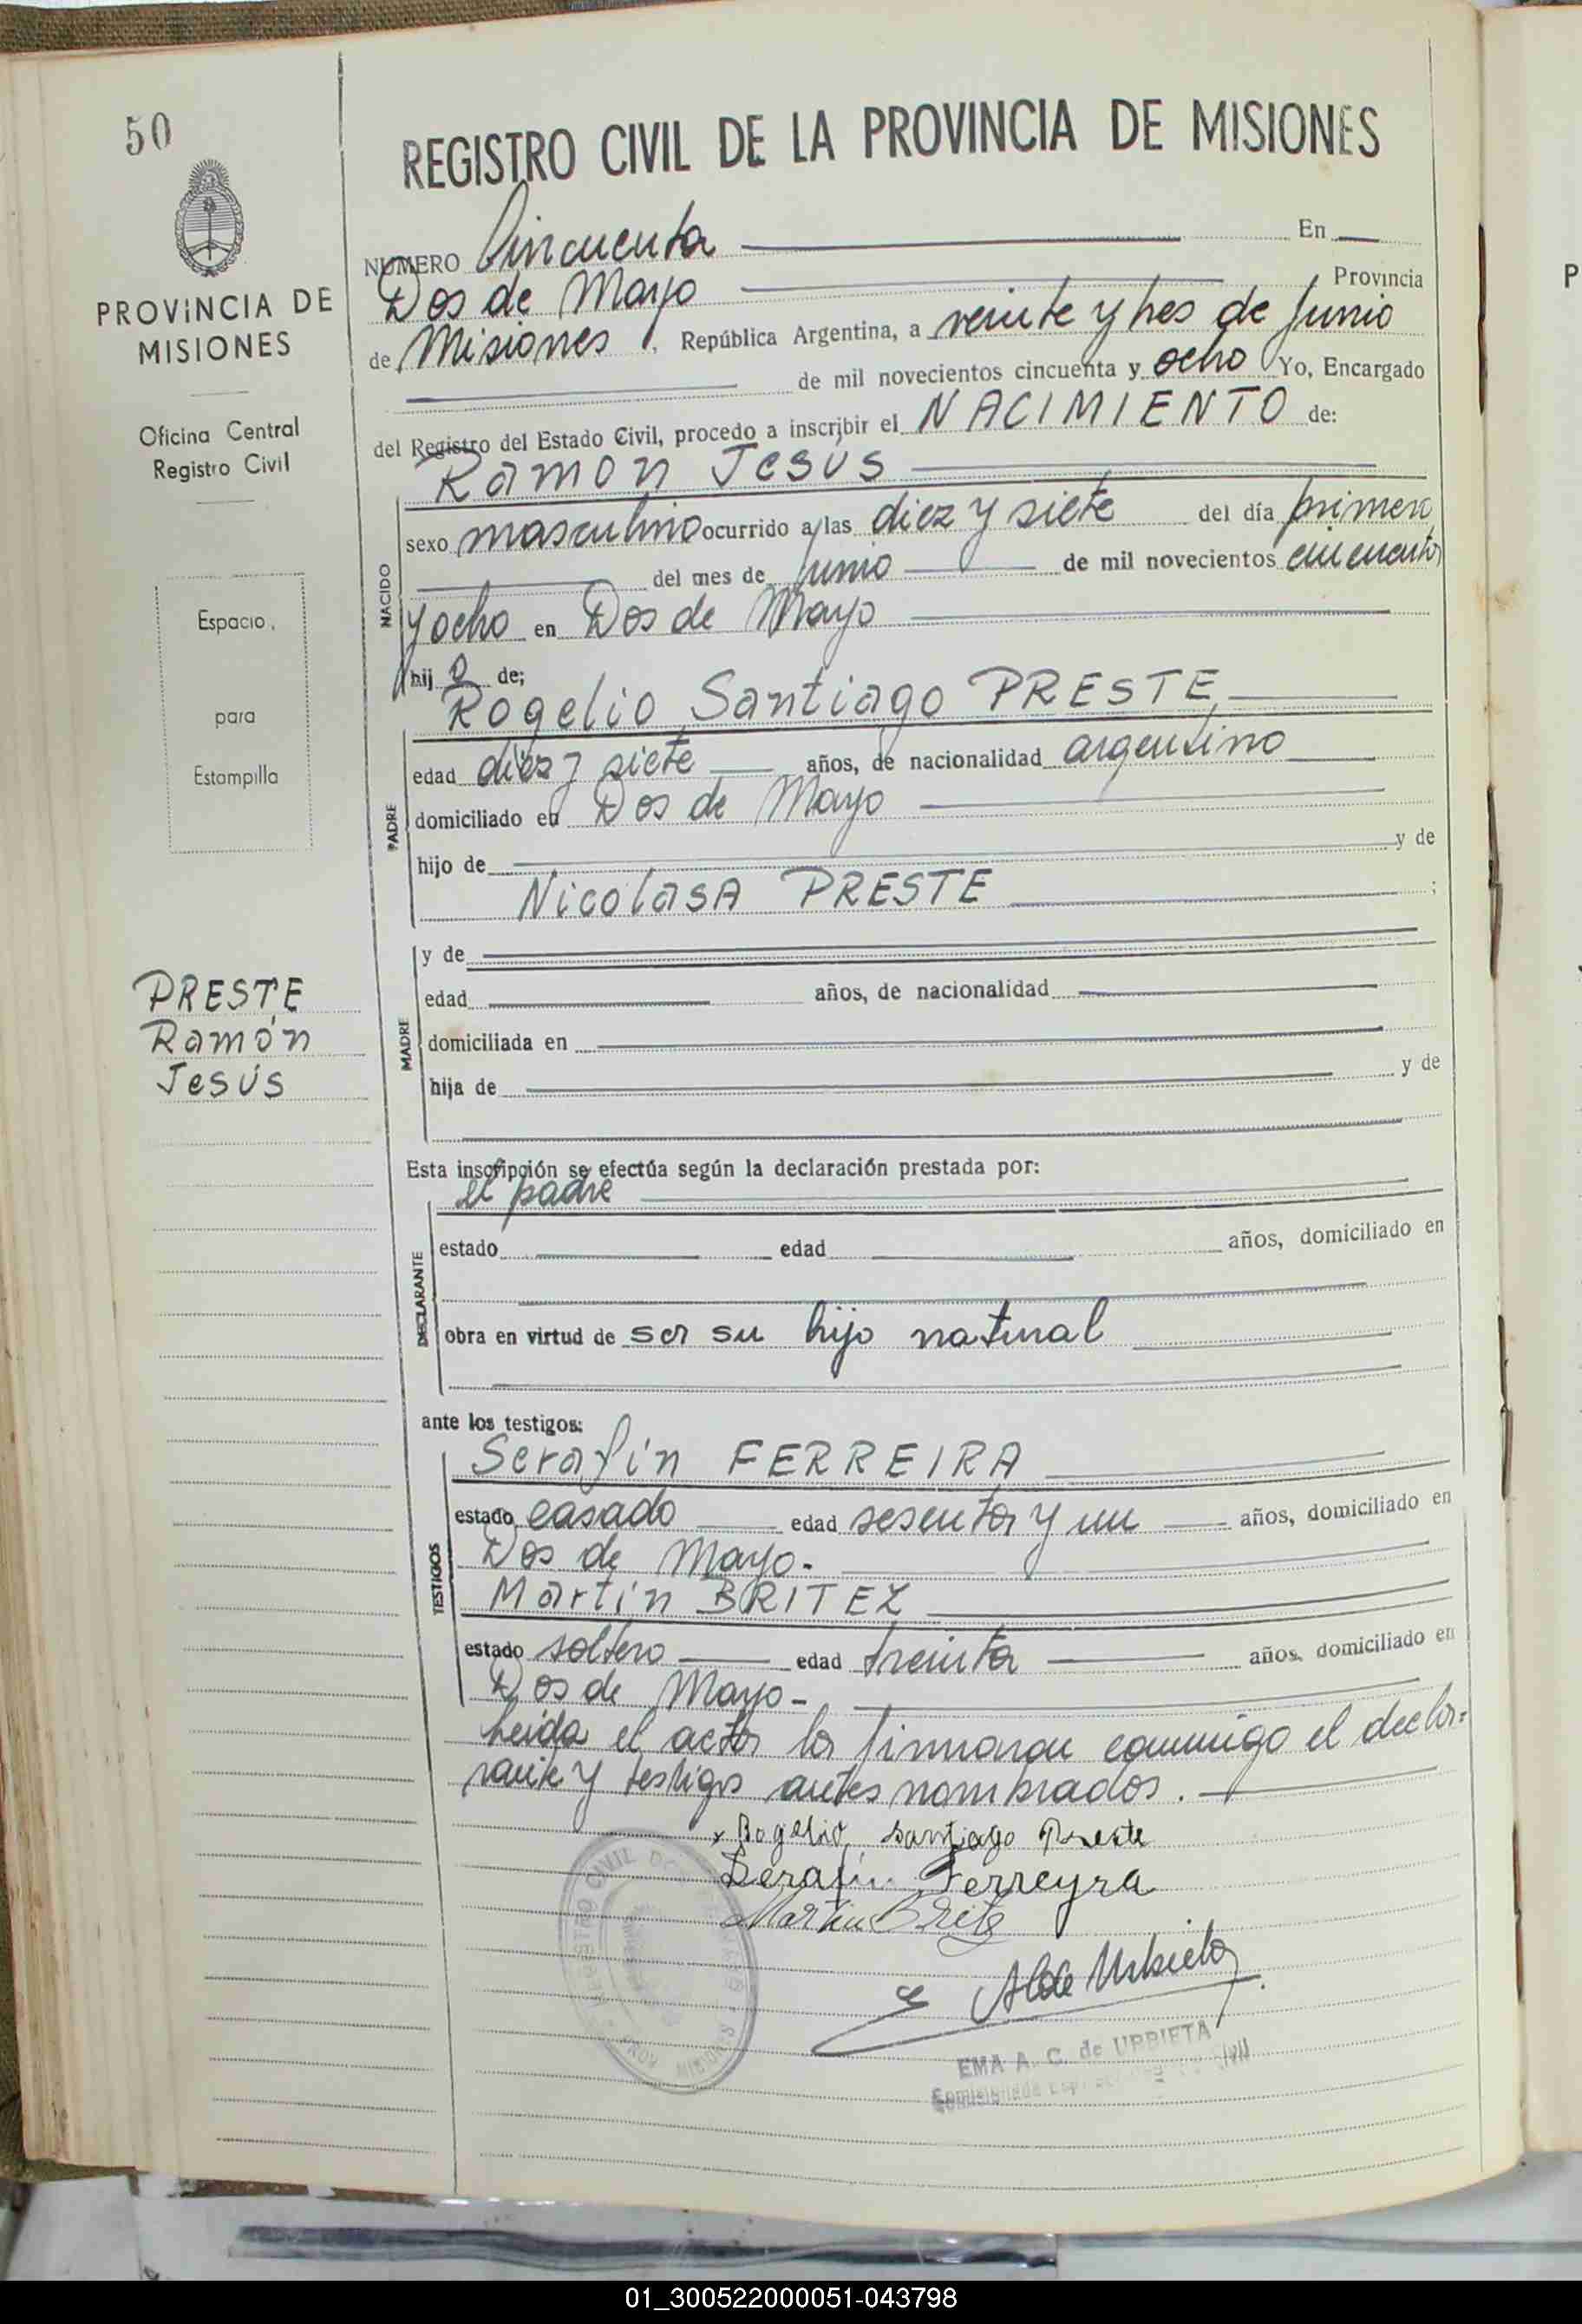 50
PROVINCIA DE
MISIONES
Oficina Central
Registro Civil
Espacio
para
Estampilla
PRESTE
Ramón
Jesús
REGISTRO CIVIL DE LA PROVINCIA DE MISIONES
NUMERO Cincuenta En
Dos de Mayo Provincia
de Misiones, República Argentina, a veinte y tres de Junio
de mil novecientos cincuenta y ocho Yo, Encargado
del Registro del Estado Civil, procedo a inscribir el NACIMIENTO de:
Ramón Jesús
NACIDO
sexo masculino ocurrido a las diez y siete del día primero
del mes de Junio de mil novecientos cincuenta
y ocho en Dos de Mayo
hijo de;
Rogelio Santiago PRESTE
PADRE
edad diez y siete años, de nacionalidad argentino
domiciliado en Dos de Mayo
hijo de y de
Nicolasa PRESTE ;
MADRE
y de
edad años, de nacionalidad
domiciliada en
hija de y de
Esta inscripción se efectúa según la declaración prestada por:
el padre
DECLARANTE
estado edad años, domiciliado en
obra en virtud de ser su hijo natural
ante los testigos:
Serafín FERREIRA
TESTIGOS
estado casado edad sesenta y un años, domiciliado en
Dos de Mayo.
Martín BRITEZ
estado soltero edad treinta años, domiciliado en
Dos de Mayo -
Leída el acta la firmaron conmigo el decla=
rante y testigos antes nombrados.
x Rogelio Santiago Preste
Serafin Ferreyra
Martin Brite
A de Urbieta
REGISTRO CIVIL DOS DE MAYO
MISIONES
EMA A. C. de URBIETA
Comisionada Civil
01_300522000051-043798